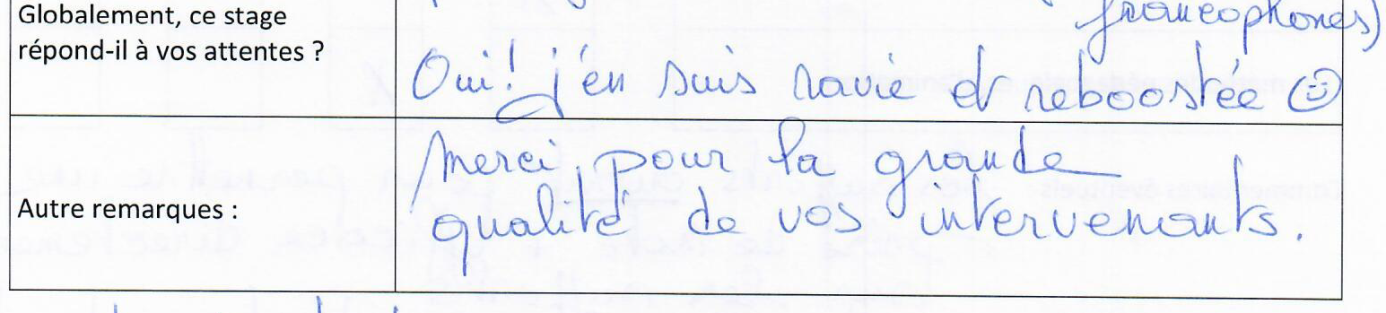 francophones)
Globalement, ce stage
répond-il à vos attentes ?
Oui! j'en suis ravie et reboostée ☺
Autre remarques :
Merci pour la grande
qualité de vos intervenants.